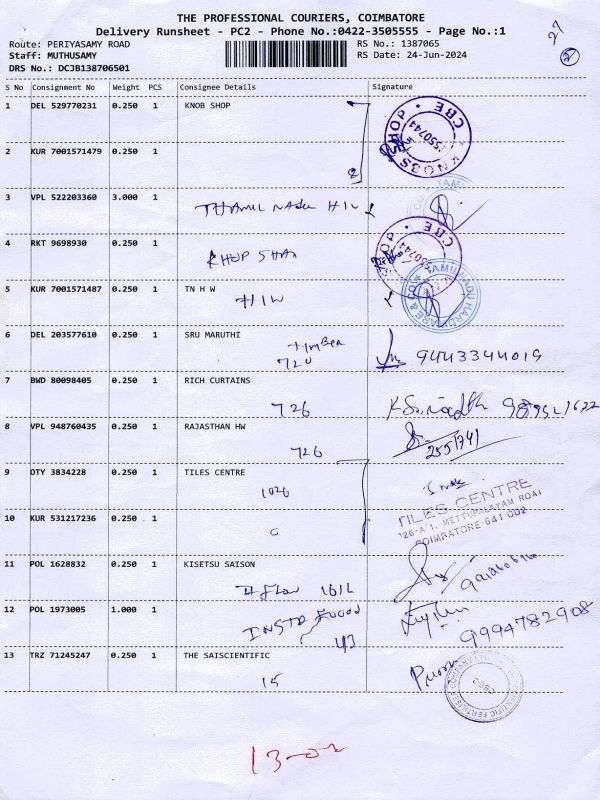 THE PROFESSIONAL COURIERS, COIMBATORE
Delivery Runsheet - PC2 - Phone No.:0422-3505555 - Page No.:1
27
2
Route: PERIYASAMY ROAD
RS No.: 1387065
Staff: MUTHUSAMY
RS Date: 24-Jun-2024
DRS No.: DCJB138706501
S No Consignment No Weight PCS Consignee Details Signature
1 DEL 529770231 0.250 1 KNOB SHOP
CBE
2 KUR 7001571479 0.250 1
3 VPL 522203360 3.000 1
THAMIL NADU H/W
4 RKT 9698930 0.250 1
CBE
5 KUR 7001571487 0.250 1 TN H W
H/W
TAMILNADU HARDWARE & CO
6 DEL 203577610 0.250 1 SRU MARUTHI
Timber
720
9443344019
7 BWD 80098405 0.250 1 RICH CURTAINS
726
8 VPL 948760435 0.250 1 RAJASTHAN HW
726
2551741
9 OTY 3834228 0.250 1 TILES CENTRE
1026
TILES CENTRE
126-A/1, METTUPALAYAM ROAD
COIMBATORE-641 002
10 KUR 531217236 0.250 1
11 POL 1628832 0.250 1 KISETSU SAISON
12 POL 1973005 1.000 1
43
9994782908
13 TRZ 71245247 0.250 1 THE SAISCIENTIFIC
15
13-02